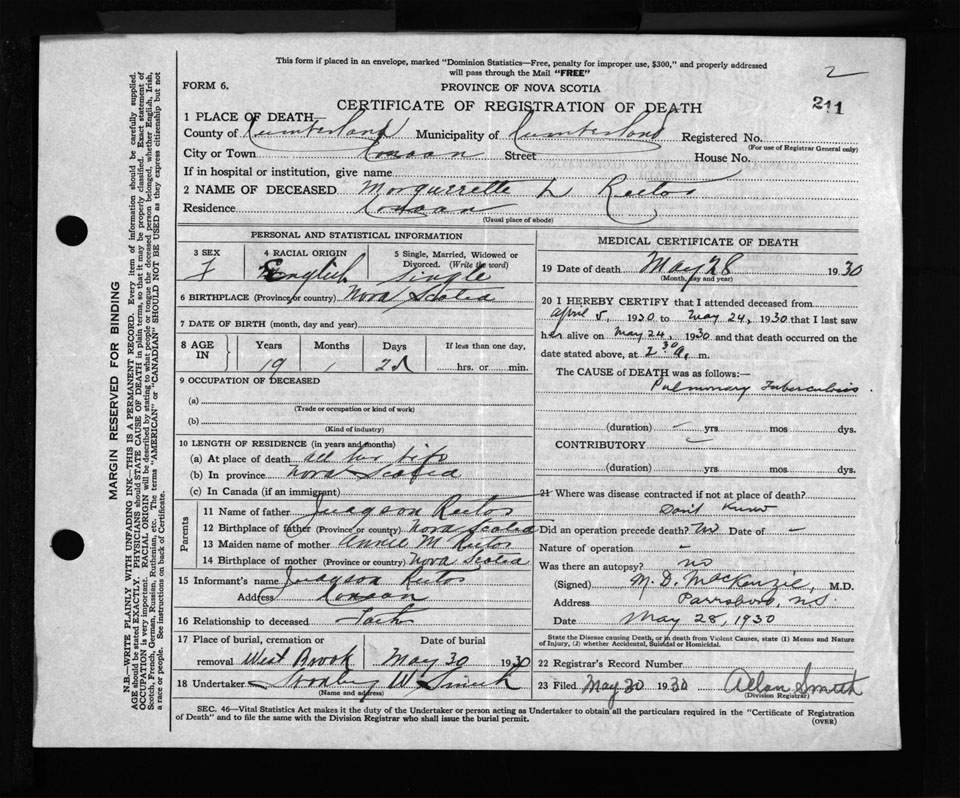 This form if placed in an envelope, marked "Dominion Statistics—Free, penalty for improper use, $300," and properly addressed
will pass through the Mail "FREE"
2
FORM 6.
PROVINCE OF NOVA SCOTIA
CERTIFICATE OF REGISTRATION OF DEATH
211
1 PLACE OF DEATH—
County of Cumberland Municipality of Cumberland Registered No.
(For use of Registrar General only)
City or Town Street House No.
If in hospital or institution, give name
2 NAME OF DECEASED L
Residence
(Usual place of abode)
PERSONAL AND STATISTICAL INFORMATION
3 SEX 4 RACIAL ORIGIN 5 Single, Married, Widowed or Divorced. (Write the word)
F English Single
6 BIRTHPLACE (Province or country) Nova Scotia
7 DATE OF BIRTH (month, day and year)
8 AGE IN Years Months Days If less than one day,
19 1 hrs. or min.
9 OCCUPATION OF DECEASED
(a)
(Trade or occupation or kind of work)
(b)
(Kind of industry)
10 LENGTH OF RESIDENCE (in years and months)
(a) At place of death all her life
(b) In province Nova Scotia
(c) In Canada (if an immigrant)
Parents
11 Name of father
12 Birthplace of father (Province or country) Nova Scotia
13 Maiden name of mother Annie M
14 Birthplace of mother (Province or country) Nova Scotia
15 Informant's name
Address
16 Relationship to deceased
17 Place of burial, cremation or Date of burial
removal West Brook May 30 1930
18 Undertaker W. Smith
(Name and address)
MEDICAL CERTIFICATE OF DEATH
19 Date of death May 28 1930
(Month, day and year)
20 I HEREBY CERTIFY that I attended deceased from
April 5, 1930 to May 24, 1930 that I last saw
her alive on May 24, 1930 and that death occurred on the
date stated above, at 2 30 a. m.
The CAUSE of DEATH was as follows:—
Pulmonary Tuberculosis.
(duration) — yrs mos dys.
CONTRIBUTORY —
(duration) yrs mos dys.
21 Where was disease contracted if not at place of death?
Don't Know
Did an operation precede death? No Date of —
Nature of operation —
Was there an autopsy? no
(Signed) M. D. MacKenzie, M.D.
Address Parrsboro, N.S.
Date May 28, 1930
State the Disease causing Death, or in death from Violent Causes, state (1) Means and Nature
of Injury, (2) whether Accidental, Suicidal or Homicidal.
22 Registrar's Record Number
23 Filed May 30 1930 Allan Smith
(Division Registrar)
SEC. 46—Vital Statistics Act makes it the duty of the Undertaker or person acting as Undertaker to obtain all the particulars required in the "Certificate of Registration
of Death" and to file the same with the Division Registrar who shall issue the burial permit.
(OVER)
MARGIN RESERVED FOR BINDING
N.B.—WRITE PLAINLY WITH UNFADING INK—THIS IS A PERMANENT RECORD. Every item of information should be carefully supplied.
AGE should be stated EXACTLY. PHYSICIANS should STATE CAUSE OF DEATH in plain terms, so that it may be properly classified. Exact statement of
OCCUPATION is very important. RACIAL ORIGIN will be described by stating to what people or tongue the deceased person belonged, whether English, Irish,
Scotch, French, German, Russian, Ruthenian, etc. The terms "AMERICAN" or "CANADIAN" SHOULD NOT BE USED as they express citizenship but not
a race or people. See instructions on back of Certificate.